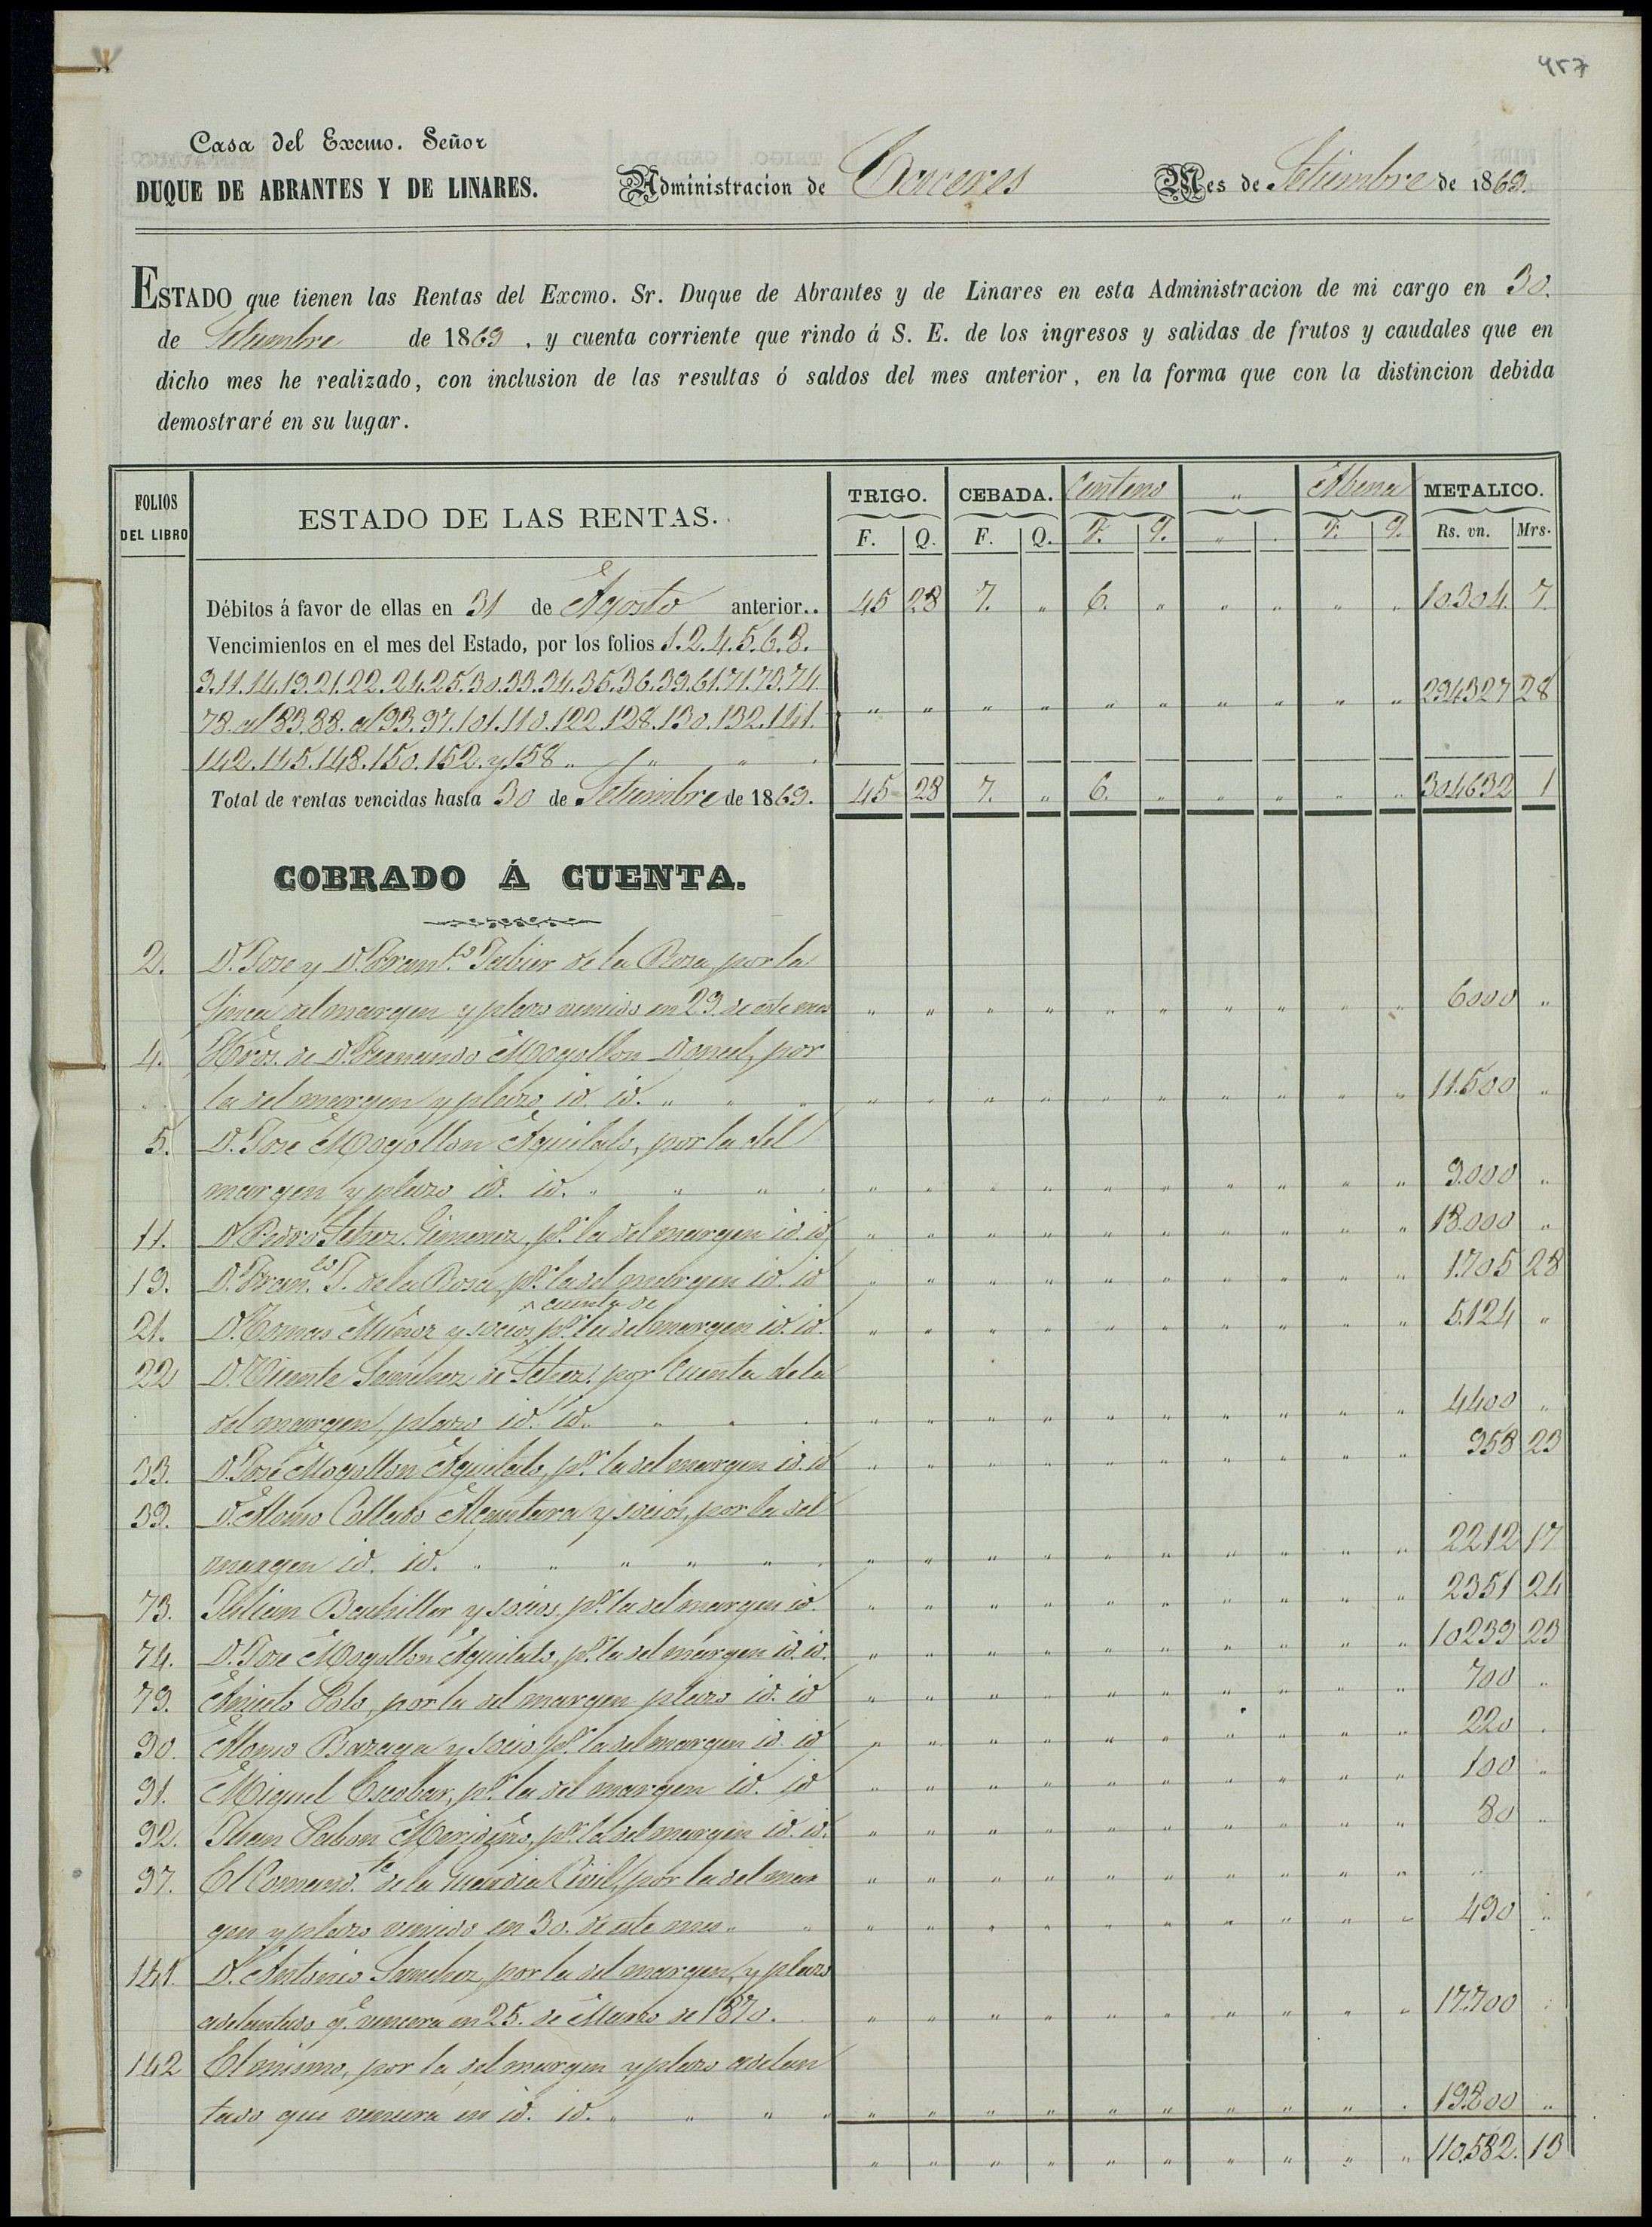 457
Casa del Excmo. Señor
DUQUE DE ABRANTES Y DE LINARES.
Administracion de Caceres
Mes de Setiembre de 1869.
ESTADO que tienen las Rentas del Excmo. Sr. Duque de Abrantes y de Linares en esta Administracion de mi cargo en 30.
de Setiembre de 1869, y cuenta corriente que rindo á S. E. de los ingresos y salidas de frutos y caudales que en
dicho mes he realizado, con inclusion de las resultas ó saldos del mes anterior, en la forma que con la distincion debida
demostraré en su lugar.
FOLIOS DEL LIBRO ESTADO DE LAS RENTAS. TRIGO. CEBADA. Centeno " Abena METALICO.
F. Q. F. Q. F. Q. " . F. Q. Rs. vn. Mrs.
Débitos á favor de ellas en 31 de Agosto anterior.. 45 28 7. " 6. " " " " " 10304. 7.
Vencimientos en el mes del Estado, por los folios 1.2.4.5.6.8.
9.11.14.19.21.22.24.25.30.33.34.35.36.39.61.71.73.74.
78. al 83.88. al 93.97.101.110.122.128.130.132.141. " " " " " " " " " " 294327 28
142.145.148.150.152. y 158 " " "
Total de rentas vencidas hasta 30 de Setiembre de 1869. 45 28 7. " 6. " " " " " 304632 1
COBRADO Á CUENTA.
2. D. Jose y D. Franco. Jabier de la Rosa, por la
finca del margen y plazo vencido en 29 de este mes " " " " " " " " " " 6000 "
4. Hros. de D. Fernando Mogollon Doncel, por
la del margen y plazo id. id. " " " " " " " " " " " " " 11.500 "
5. D. Jose Mogollon Aguilado, por la del
margen y plazo id. id. " " " " " " " " " " " " " 9.000 "
11. D. Pedro Jetrez Gimenez, pr. la del margen id. id. " " " " " " " " " " 18.000 "
19. D. Franco. J. de la Rosa, pr. la del margen id. id " " " " " " " " " " 1.705 28
cuenta de
21. D. Tomas Muñoz y socios, pr. la del margen id. id. " " " " " " " " " " 5.124 "
22 D. Vicente Sanchez de Jetrez, por cuenta de la
del margen, plazo id. id. " " " " " " " " " " " " " 4400 "
33. D. José Mogollon Aguilado, pr. la del margen id. id " " " " " " " " " " 958 23
39. D. Alonso Collado Alcantara y socios, por la del
margen id. id. " " " " " " " " " " " " " " " 2212 17
73. Julian Bachiller y socios, pr. la del margen id. " " " " " " " " " " 2351 24
74. D. Jose Mogollon Aguilado, pr. la del margen id. id. " " " " " " " " " " 10239 23
79. Aniceto Polo, por la del margen plazo id. id " " " " " " " " " " 700 "
90. Alonso Bazaga y socio, pr. la del margen id. id " " " " " " " " " " 220 "
91. Miguel Escobar, pr. la del margen id. id " " " " " " " " " " 100 "
92. Juan Pabon Merideño, pr. la del margen id. id. " " " " " " " " " " 80 "
97. El Comandte. de la Guardia Civil, por la del mar " " " " " " " " " " "
gen y plazo vencido en 30. de este mes. " " " " " " " " " " " 490 "
141. D. Antonio Sanchez, por la del margen, y plazo
adelantado q. vencera en 25. de Marzo de 1870. " " " " " " " " " " 17.700 "
142 El mismo, por la del margen y plazo adelan
tado que vencera en id. id. " " " " " " " " " " " " " 19.800 "
" " " " " " " " " " 110.582. 13